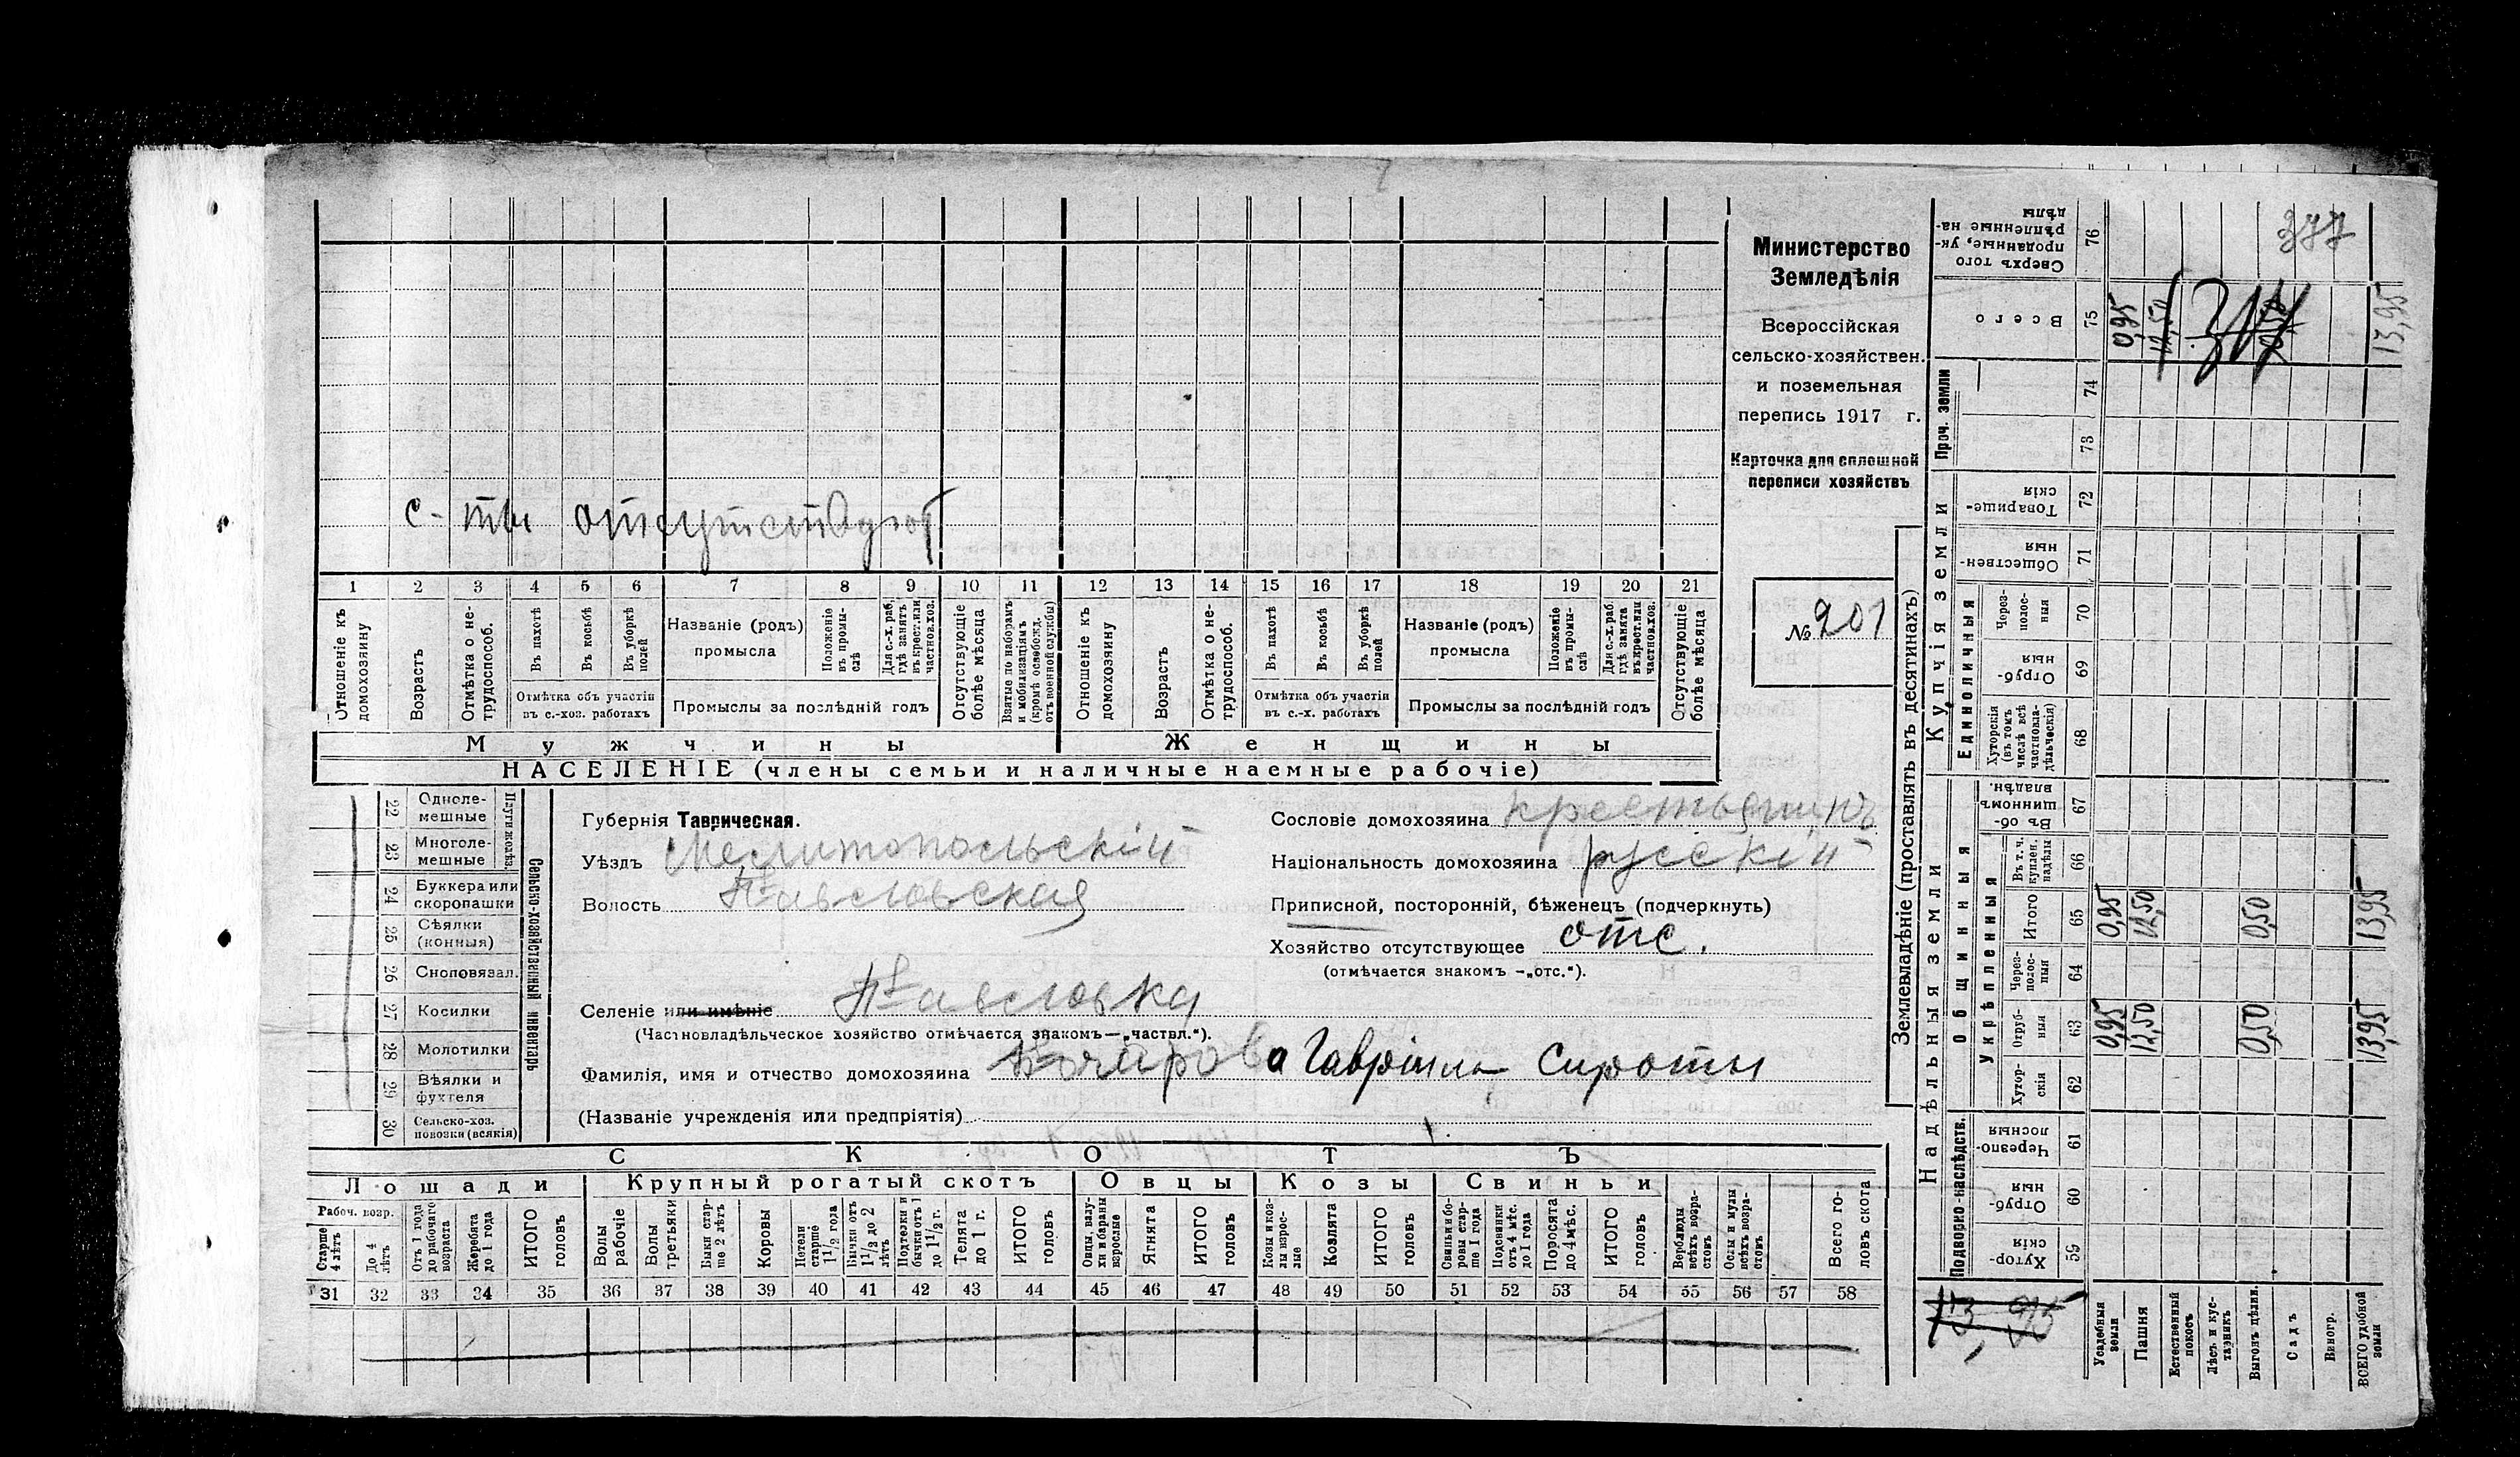 с-ты отсутствуют
1 2 3 4 5 6 7 8 9 10 11 12 13 14 15 16 17 18 19 20 21
Отношеніе къ домохозяину
Возрастъ
Отмѣтка о не-трудоспособ.
Въ пахотѣ
Въ косьбѣ
Въ уборкѣ полей
Отмѣтка объ участіи въ с.-хоз. работахъ
Названіе (родъ) промысла
Положеніе въ промы-слѣ
Для с.-х. раб. гдѣ занятъ въ крест. или частнов. хоз.
Промыслы за послѣдній годъ
Отсутствующіе болѣе мѣсяца
Взятые по наборамъ и мобилизаціямъ (кромѣ освобожд. отъ военной службы)
Отношеніе къ домохозяину
Возрастъ
Отмѣтка о не-трудоспособ.
Въ пахотѣ
Въ косьбѣ
Въ уборкѣ полей
Отмѣтка объ участіи въ с.-х. работахъ
Названіе (родъ) промысла
Положеніе въ промы-слѣ
Для с.-х. раб. гдѣ занята въ крест. или частнов. хоз.
Промыслы за послѣдній годъ
Отсутствующіе болѣе мѣсяца
Мужчины Женщины
НАСЕЛЕНІЕ (члены семьи и наличные наемные рабочіе)
Министерство
Земледѣлія
Всероссійская
сельско-хозяйствен.
и поземельная
перепись 1917 г.
Карточка для сплошной
переписи хозяйствъ
№ 201
22 Одноле-мешные
23 Многоле-мешные
24 Буккера или скоропашки
25 Сѣялки (конныя)
26 Сноповязал.
27 Косилки
28 Молотилки
29 Вѣялки и фухтеля
30 Сельско-хоз. повозки (всякія)
Сельско-хозяйственный инвентарь
Губернія Таврическая.
Уѣздъ Мелитопольскій
Волость Павловская
Сословіе домохозяина крестьянинъ
Національность домохозяина русскій
Приписной, посторонній, бѣженецъ (подчеркнуть)
Хозяйство отсутствующее отс.
(отмѣчается знакомъ —„отс.“).
Селеніе или имѣніе Павловка
(Частновладѣльческое хозяйство отмѣчается знакомъ—„частвл.“).
Фамилія, имя и отчество домохозяина Бочарова Гавріила Сироты
(Названіе учрежденія или предпріятія)
СКОТЪ
Лошади Крупный рогатый скотъ Овцы Козы Свиньи
Рабоч. возр.
Старше 4 лѣтъ
До 4 лѣтъ
Отъ 1 года до рабочаго возраста
Жеребята до 1 года
ИТОГО головъ
Волы рабочіе
Волы третьяки
Быки стар-ше 2 лѣтъ
Коровы
Нетели старше 1 1/2 года
Бычки отъ 1 1/2 до 2 лѣтъ
Подтелки и бычки отъ 1 до 1 1/2 г.
Телята до 1 г.
ИТОГО головъ
Овцы, валу-хи и бараны взрослые
Ягнята
ИТОГО головъ
Козы и коз-лы взрос-лые
Козлята
ИТОГО головъ
Свиньи и бо-ровы стар-ше 1 года
Подсвинки отъ 4 мѣс. до 1 года
Поросята до 4 мѣс.
ИТОГО головъ
Верблюды всѣхъ возра-стовъ
Ослы и мулы всѣхъ возра-стовъ
Всего го-ловъ скота
31 32 33 34 35 36 37 38 39 40 41 42 43 44 45 46 47 48 49 50 51 52 53 54 55 56 57 58
Землевладѣніе (проставлять въ десятинахъ)
Надѣльныя земли Купчія земли Проч. земли
Подворно-наслѣдств. Общинныя Единоличныя
Укрѣпленныя
Хутор-скія 59
Отруб-ныя 60
Черезпо-лосныя 61
Хутор-скія 62
Отруб-ныя 63 0,95 12,50 0,50 13,95
Через-полос-ныя 64
Итого 65 0,95 12,50 0,50 13,95
Въ т. ч. куплен. надѣлы 66
Въ об-щинномъ владѣн. 67
Хуторскія (въ томъ числѣ всѣ частновла-дѣльческія) 68
Отруб-ныя 69
Через-полос-ныя 70
Обществен-ныя 71
Товарище-скія 72
73
74
Всего 75 0,95 12,50 13,95
Сверхъ того проданные, ук-рѣпленные на-дѣлы 76
377
13,95
Усадебныя земли
Пашня
Естественный покосъ
Лѣсъ и кус-тарникъ
Выгонъ цѣлин.
Садъ
Виногр.
ВСЕГО удобной земли